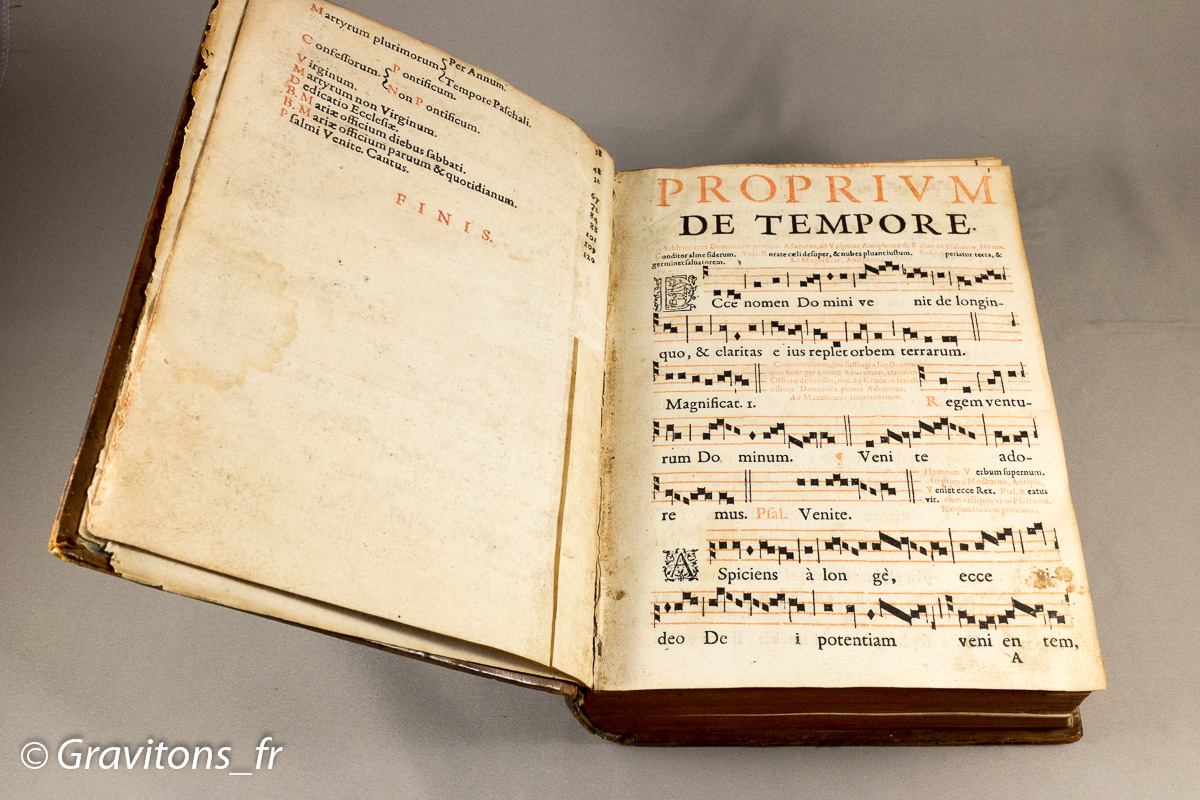 Martyrum plurimorum { Per Annum.
Tempore Paschali.
Confessorum. { Pontificum.
Non Pontificum.
Virginum.
Martyrum non Virginum.
Dedicatio Ecclesiæ.
B. Mariæ officium diebus sabbati.
B. Mariæ officium paruum & quotidianum.
Psalmi Venite. Cantus.
67
72
84
88
101
109
FINIS.
1
PROPRIVM
DE TEMPORE.
Conditor alme siderum. Rorate cæli desuper, & nubes pluant iustum. periatur terra, &
germinet saluatorem.
ECce nomen Do mini ve nit de longin-
quo, & claritas e ius replet orbem terrarum.
Ad Matutinum, inuitatorium.
Magnificat. 1. Regem ventu-
rum Do minum. ¶ Veni te ado-
Hymnus Verbum supernum.
Veniet ecce Rex. Psal. Beatus
vir.
re mus. Psal. Venite.
ASpiciens à lon gè, ecce vi-
deo De i potentiam veni en tem,
A
© Gravitons_fr